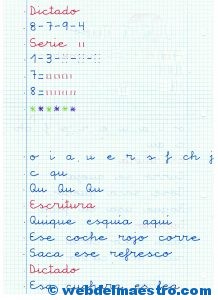 Dictado
8-7-9-4
Serie
1-3-
7=
8=
o i a u e r s f ch j
c qu
Qu Qu Qu
Escritura
Quique esquia aqui
Ese coche rojo corre
Saca ese refresco
Dictado
Esa es fea
© webdelmaestro.com